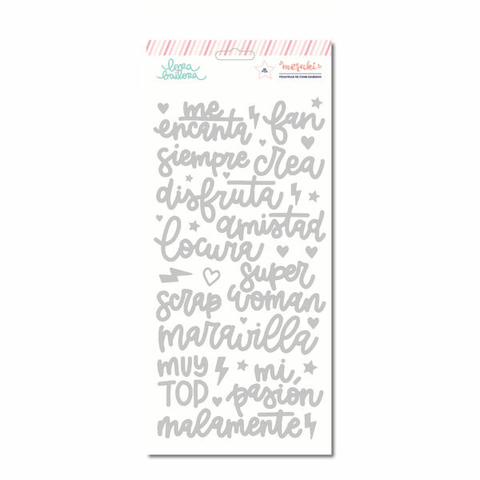 lora
bailora
meraki
me
encanta
fan
siempre crea
disfruta
amistad
locura
super
scrap woman
maravilla
muy
TOP
mi
pasión
malamente